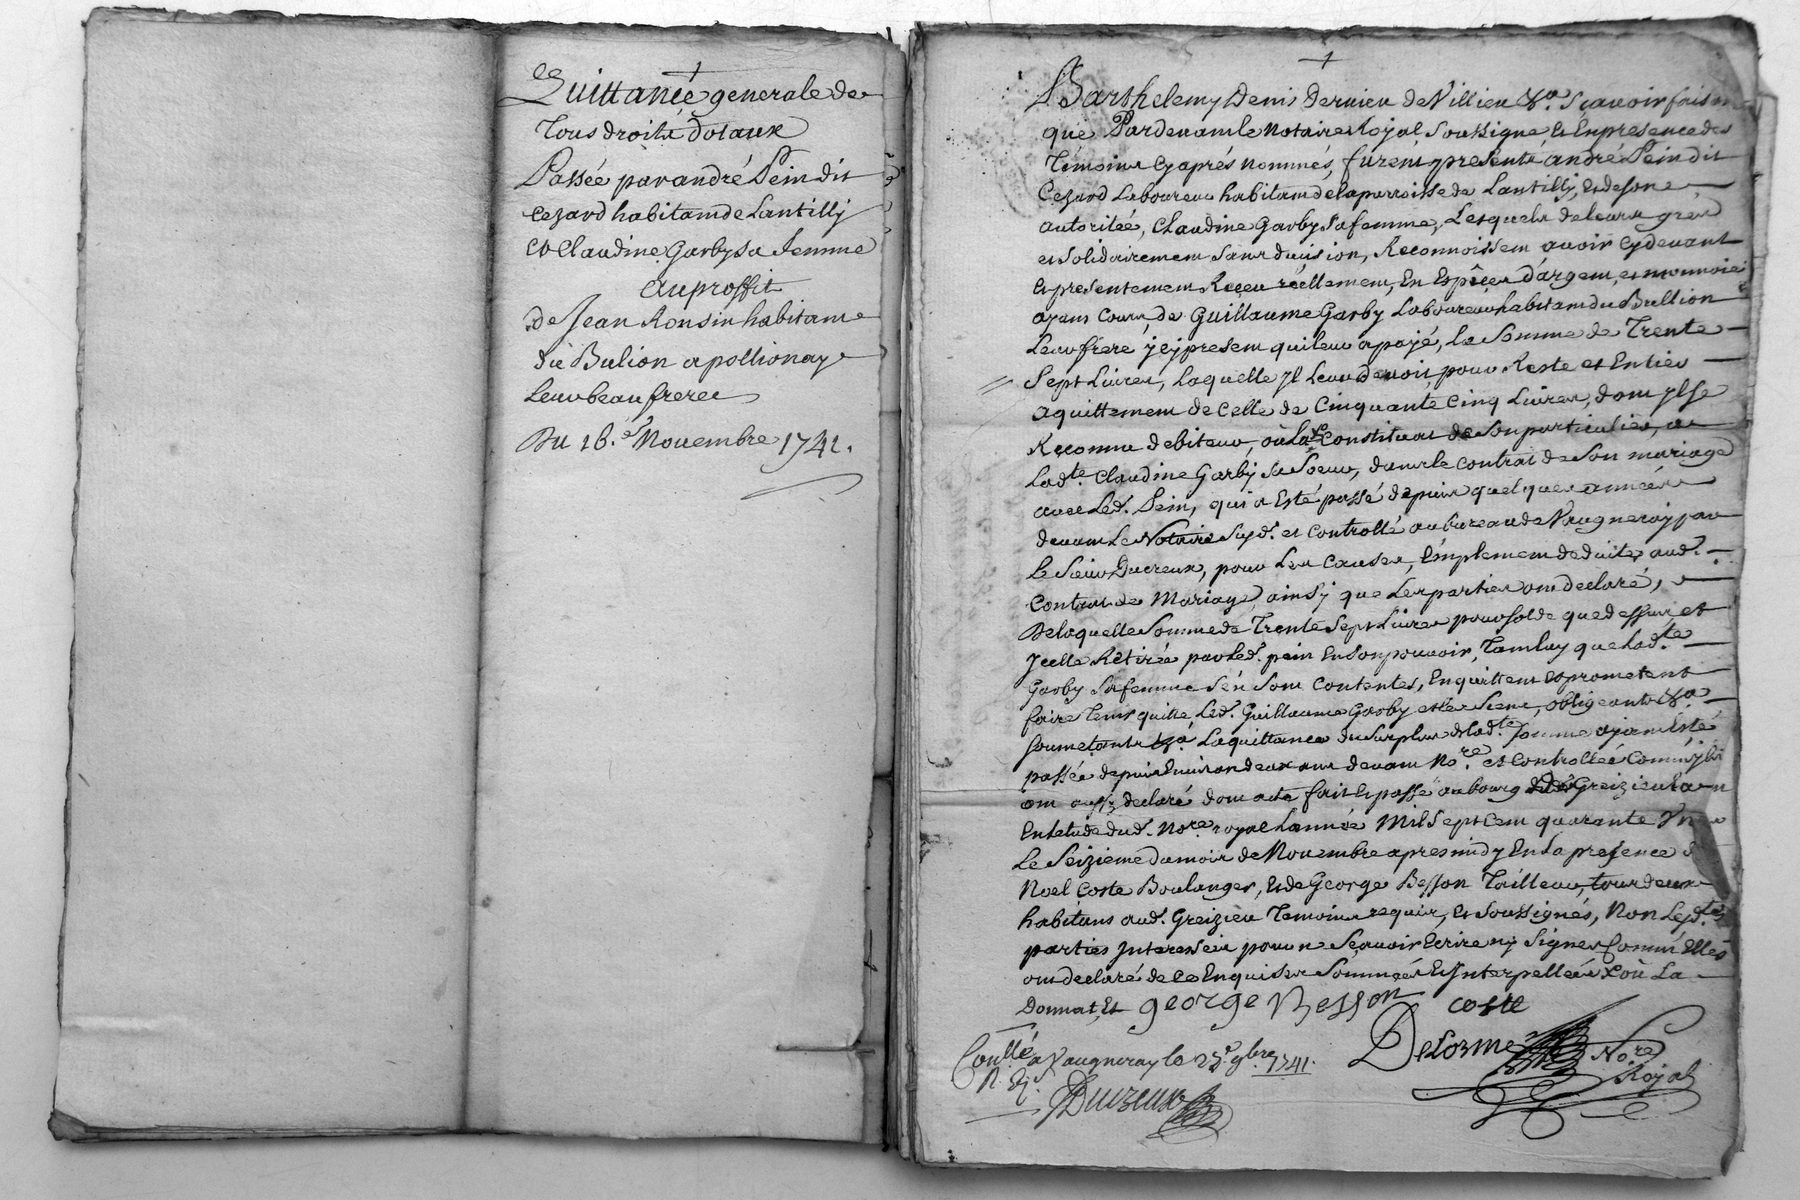 Quittance generale de
Tous droits dotaux
Passée par andré Pein dit
Cezard habitant de Lantilly
et Claudine Garby sa femme
au proffit
de Jean Ronsin habitant
du Bulion a pollionay
Leur beau frere
Du 16.e Novembre 1741.
Barthelemy Denis Dervieu de Villieu &a. Sçavoir faisons
que Pardevant le Notaire Royal Soussigné et En presence des
Témoins Cyaprés nommés, furent presents andré Pein dit
Cezard Laboureur habitant de la parroisse de Lantilly, et de son
autoritée, Claudine Garby Sa femme, Lesquels de leurs grés
et Solidairement Sans division, Reconnoissent avoir Cydevant
et presentement Reçeu réellement, En Espêces d'argent, et monnoies
ayant Cours, de Guillaume Garby Laboureur habitant du Bullion
Leur frere jcy present qui leur a payé, la Somme de Trente
Sept Livres, Laquelle Jl Leur Devoit pour Reste et Entier
aquittement de Celle de Cinquante Cinq Livres, dont Jl se
Reconnu debiteur, où La Constituat de Son particulier, a
Lad.te Claudine Garby Sa Soeur, dans le Contrat de Son mariage
avec Led. Pein, qui a Esté passé depuis quelques années
devant Le Notaire Suyd. et Controllé au bureau de Vaugneray par
le Sieur Ducreux, pour Les Causes, Emplement deduites aud.
Contrat de Mariage, ainsy que Les parties ont declaré,
De laquelle Somme de Trente Sept Livres pour solde que dessus et
Jcelle Retirée par Led. pein En son pouvoir, Tant luy que Lad.te
Garby Sa femme S'én Sont Contentés, En quittent et prometent
faire Tenir quitte, Led. Guillaume Garby et les Siens, obligeants &a
Soumetants &a La quittance du Surplus de lad.te Somme ayant Esté
passée depuis Environ deux ans devant No.re et Controllée Comm' jls
ont aussy declaré dont acte fait et passé au bourg de Greizieu La
En Letude dud. No.re royal Lannée Mil Sept Cent quarante Vn
Le Seizieme du mois de Novembre apres midy En La presence de
Noel Coste Boulanger, et de George Besson Tailleur, tous deux
habitans aud. Greizieu Temoins requis, et Soussignés, Non Lesd.tes
parties Jnteressées pour ne Sçavoir Ecrire ny Signer Comm' Elles
ont declaré de ce Enquises Sommées et Jnterpellées où La
Donnat, et george Besson coste
Delorme No.re Royal
Con.llé a Vaugneray le 29.e 9bre 1741.
Ducreux